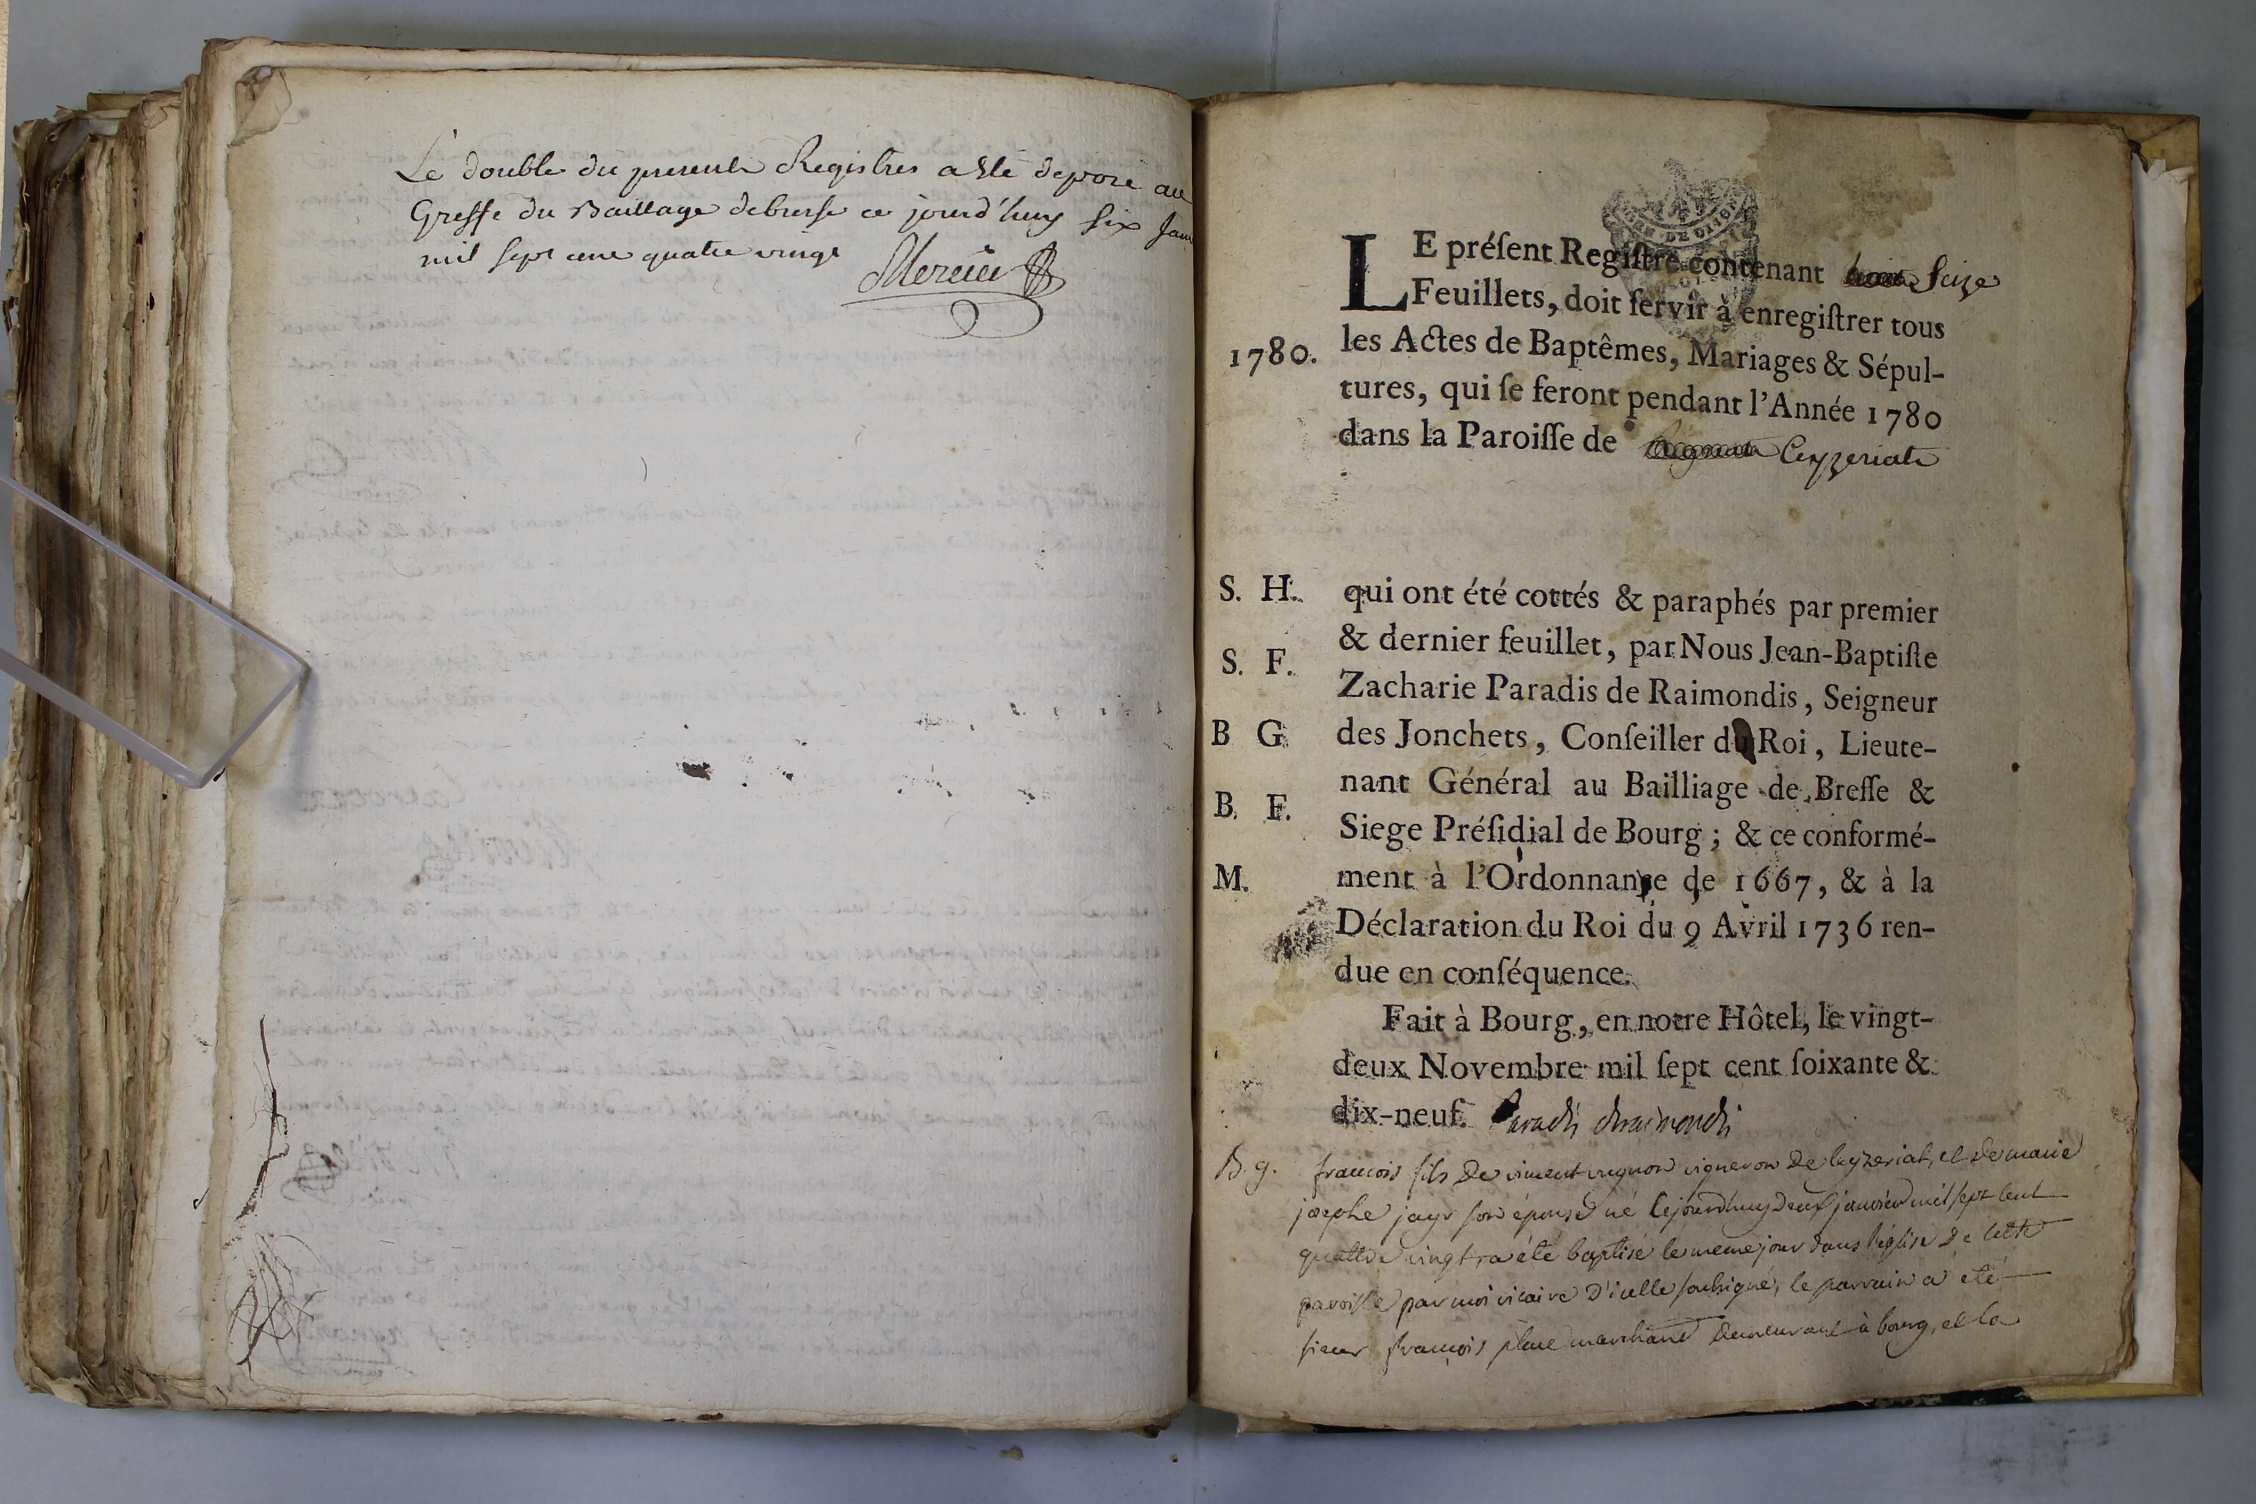 Le double du present Registres a ete deposé au
Greffe du Baillage debresse ce jourd'huy Six Janv
mil sept cent quatre vingt
Mercier
LE préſent Regiſtre contenant Seize
Feuillets, doit ſervir à enregiſtrer tous
1780. les Actes de Baptêmes, Mariages & Sépul-
tures, qui ſe feront pendant l'Année 1780
dans la Paroiſſe de Ceyzeriat
S. H. qui ont été cottés & paraphés par premier
& dernier feuillet, par Nous Jean-Baptiſte
S. F. Zacharie Paradis de Raimondis, Seigneur
B G des Jonchets, Conſeiller du Roi, Lieute-
nant Général au Bailliage de Breſſe &
B. F. Siege Préſidial de Bourg; & ce conformé-
M. ment à l'Ordonnance de 1667, & à la
Déclaration du Roi du 9 Avril 1736 ren-
due en conſéquence.
Fait à Bourg, en notre Hôtel, le vingt-
deux Novembre mil ſept cent ſoixante &
dix-neuf. Paradis deraimondis
B. g. francois fils de vincent vigneron de Ceyzeriat, et de marie
josephe jayr son épouse né cejourd'huy deux janvier mil sept cent
quattre vingt a été baptisé le meme jour dans l'église de cette
paroisse par moi vicaire d'icelle soubsigné, le parrain a été
sieur françois marchand demeurant à bourg, et la